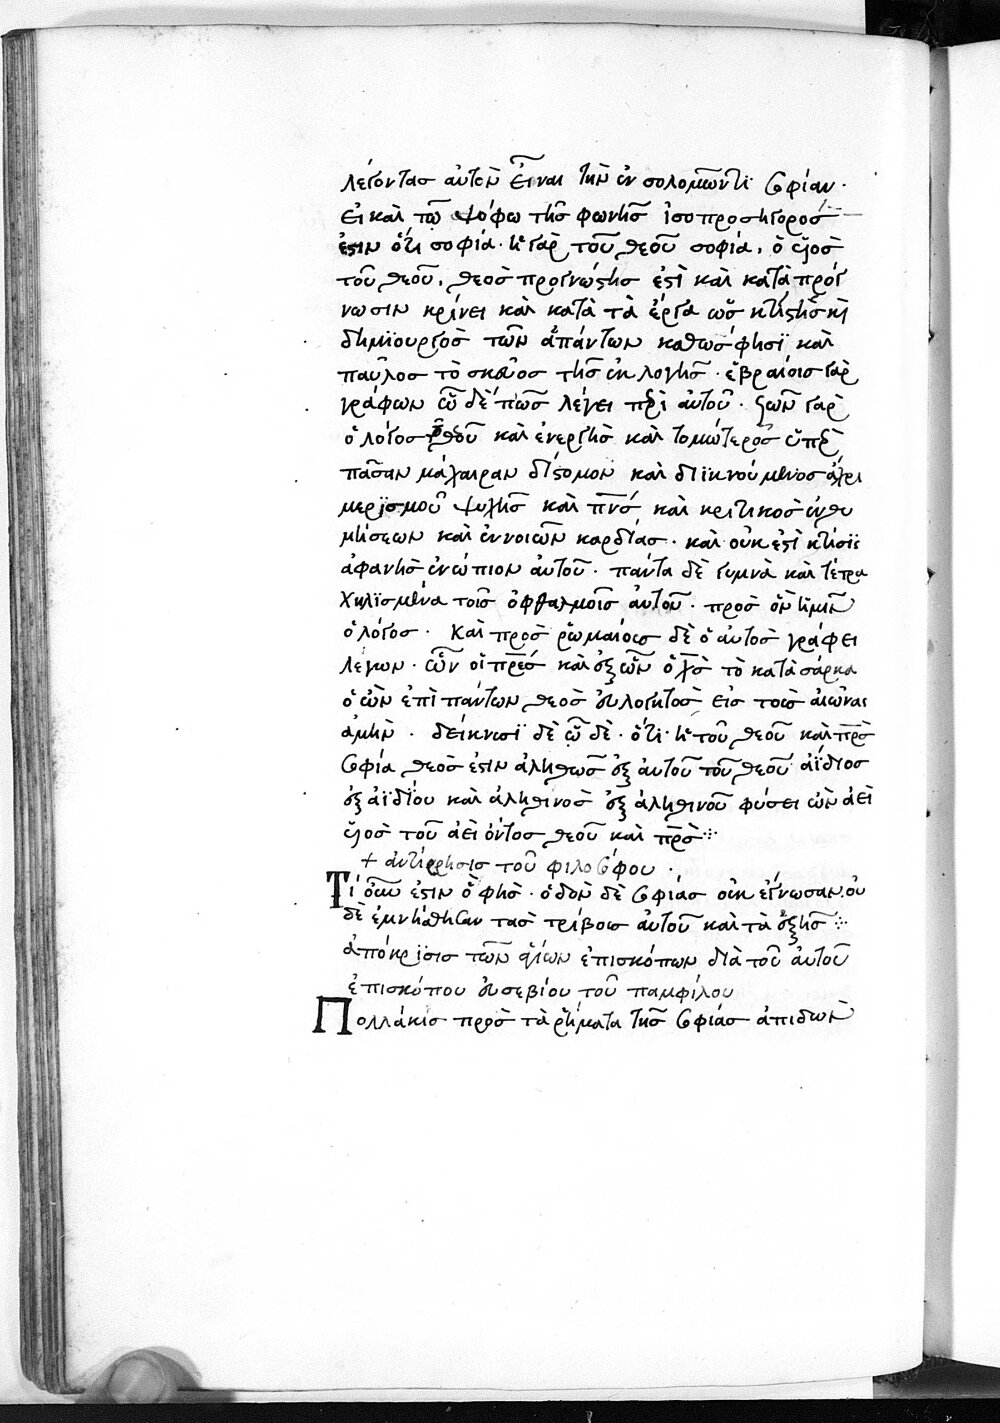 λέγοντας αὐτὸν εἶναι τὴν ἐν σολομῶντϊ σοφίαν·
εἰ καὶ τῶ ψόφω τῆς φωνῆς ἰσοπροσήγορός
ἐστιν ὅτι σοφία· ἡ γὰρ τοῦ θεοῦ σοφία, ὁ υἱὸς
τοῦ θεοῦ, θεὸς προγνώστης ἐστὶ καὶ κατὰ πρόγ
νωσιν κρίνει καὶ κατὰ τὰ ἔργα ὡς κτίστης κὶ
δημϊουργὸς τῶν ἁπάντων καθὼς φησϊ καὶ
παῦλος τὸ σκεῦος τῆς ἐκλογῆς· ἑβραίοις γὰρ
γράφων ὧδέ πως λέγει περὶ αὐτοῦ· ζῶν γὰρ
ὁ λόγος τοῦ θεοῦ καὶ ἐνεργὴς καὶ τομώτερος ὑπὲρ
πᾶσαν μάχαιραν δίστομον καὶ διϊκνούμενος ἄχρι
μερϊσμοῦ ψυχῆς καὶ πνς καὶ κριτικὸς ἐνθυ
μήσεων καὶ ἐννοιῶν καρδίας· καὶ οὐκ ἐστὶ κτίσϊς
ἀφανὴς ἐνώπιον αὐτοῦ· πάντα δὲ γυμνὰ καὶ τετρα
χηλϊσμένα τοῖς ὀφθαλμοῖς αὐτοῦ· πρὸς ὃν ἡμῖν
ὁ λόγος· Καὶ πρὸς ῥωμαίους δὲ ὁ αὐτὸς γράφει
λέγων· ὧν οἱ πρες καὶ ἐξ ὧν ὁ χς τὸ κατὰ σάρκα
ὁ ὢν ἐπὶ πάντων θεὸς εὐλογητὸς εἰς τοὺς αἰῶνας
ἀμήν· δείκνυσϊ δὲ ὧδε· ὅτι ἡ τοῦ θεοῦ καὶ πρς
σοφία θεὸς ἐστιν ἀληθῶς ἐξ αὐτοῦ τοῦ θεοῦ ἀΐδιος
ἐξ ἀϊδίου καὶ ἀληθινὸς ἐξ ἀληθινοῦ φύσει ὢν ἀεὶ
υἱὸς τοῦ ἀεὶ ὄντος θεοῦ καὶ πρς
+ ἀντίρρησις τοῦ φιλοσόφου·
Τί οὖν ἐστιν ὃ φησ· ὁδὸν δὲ σοφίας οὐκ ἔγνωσαν, οὐ
δὲ ἐμνήσθησαν τὰς τρίβους αὐτοῦ καὶ τὰ ἑξῆς
ἀπόκρϊσις τῶν ἁγίων ἐπισκόπων διὰ τοῦ αὐτοῦ
ἐπισκόπου εὐσεβίου τοῦ παμφίλου
Πολλάκις πρὸς τὰ ῥήματα τῆς σοφίας ἀπιδὼν